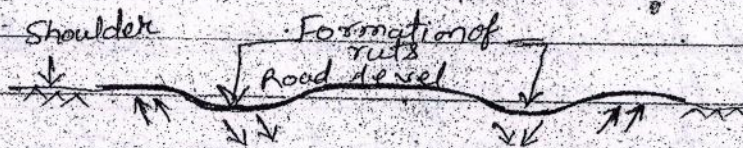 Shoulder
Formation of
ruts
Road level